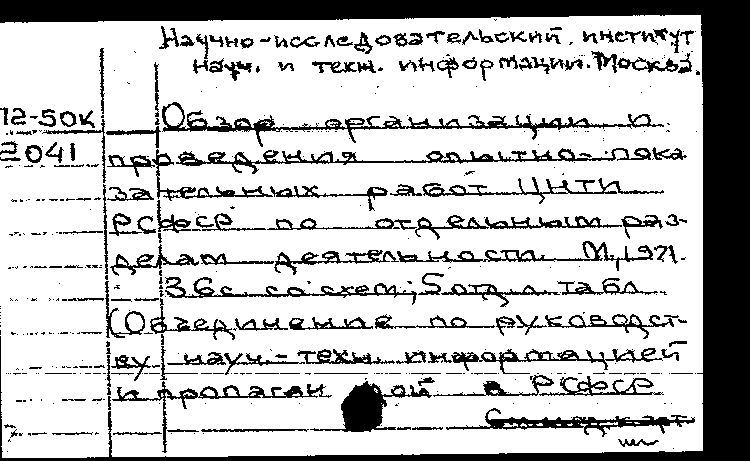 Научно-исследовательский институт
науч. и техн. информации. Москва.
72-50К Обзор организации и
2041 проведения опытно-пока
зательных работ ЦНТИ
РСФСР по отдельным раз-
делам деятельности. М., 1971.
36с. со схем; 5 отд. л. табл
(Объединение по руководст-
ву науч.-техн. информацией
и пропагандой в РСФСР